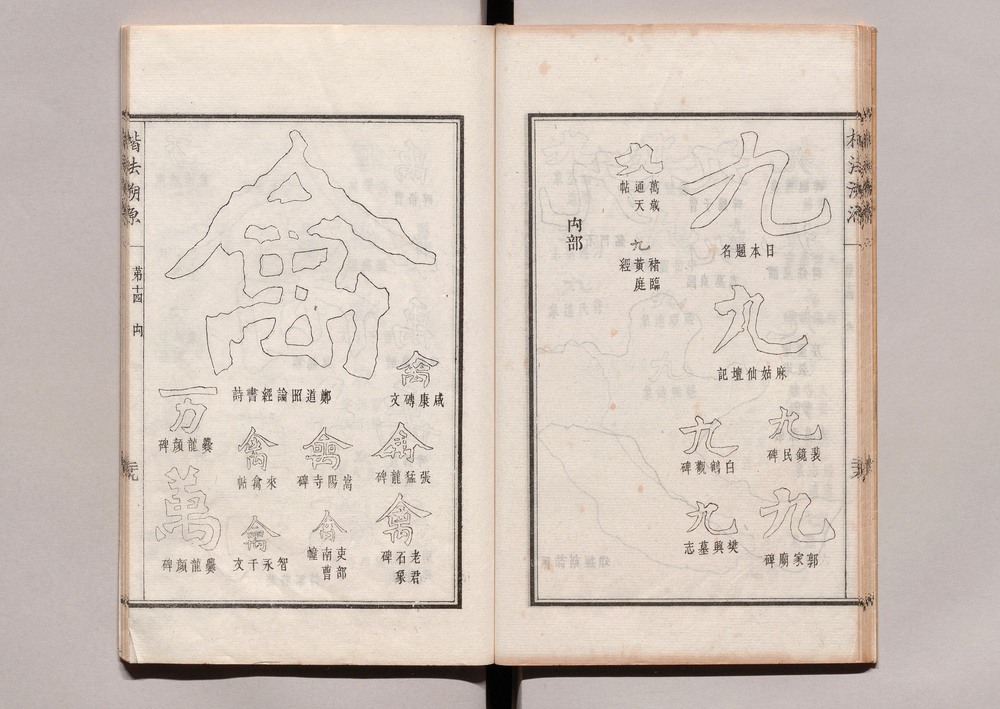 九
日本題名
九
麻姑仙壇記
九
裴鏡民碑
九
郭家廟碑
九
白鶴觀碑
九
樊興墓志
九
萬歲通天帖
九
褚臨黃庭經
禸部
禽
咸康磚文
禽
張猛龍碑
禽
老君石象碑
禽
鄭道昭論經書詩
禽
嵩陽寺碑
禽
吏部南曹幢
禽
來禽帖
禽
智永千文
万
爨龍顏碑
萬
爨龍顏碑
楷法溯源
第十四
禸